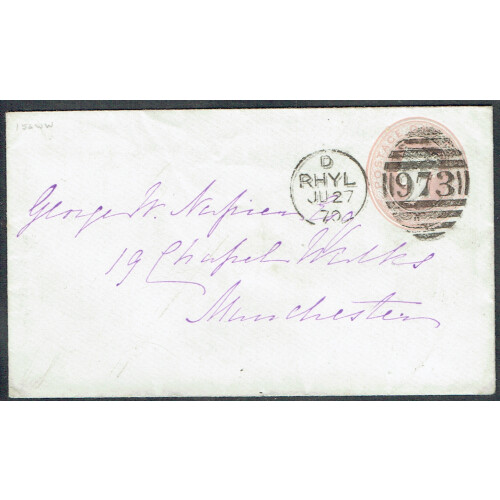 D
RHYL
JU 27
70
973
POSTAGE
George W. Napier Esq
19 Chapel Walks
Manchester